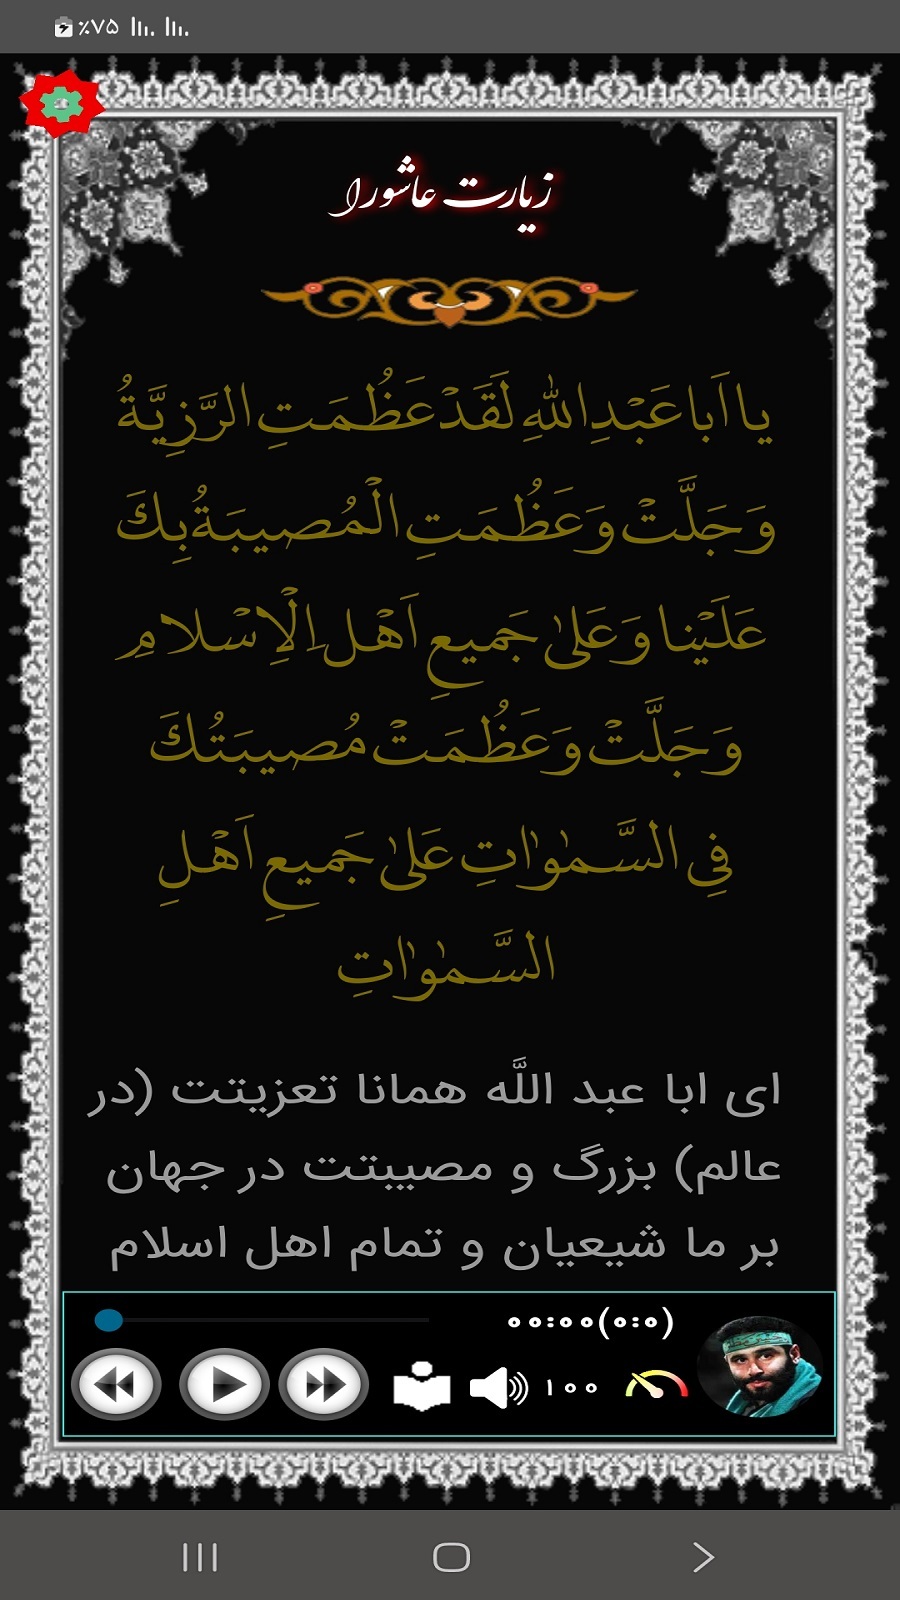 ٪۷۵
زیارت عاشورا
یا اَبا عَبْدِ اللهِ لَقَدْ عَظُمَتِ الرَّزِیَّةُ
وَ جَلَّتْ وَ عَظُمَتِ الْمُصیبَةُ بِكَ
عَلَیْنا وَ عَلیٰ جَمیعِ اَهْلِ الْاِسْلامِ
وَ جَلَّتْ وَ عَظُمَتْ مُصیبَتُكَ
فِی السَّمٰوٰاتِ عَلیٰ جَمیعِ اَهْلِ
السَّمٰوٰاتِ
ای ابا عبد اللَّه همانا تعزیتت (در
عالم) بزرگ و مصیبتت در جهان
بر ما شیعیان و تمام اهل اسلام
۰۰:۰۰(۰:۰)
۱۰۰